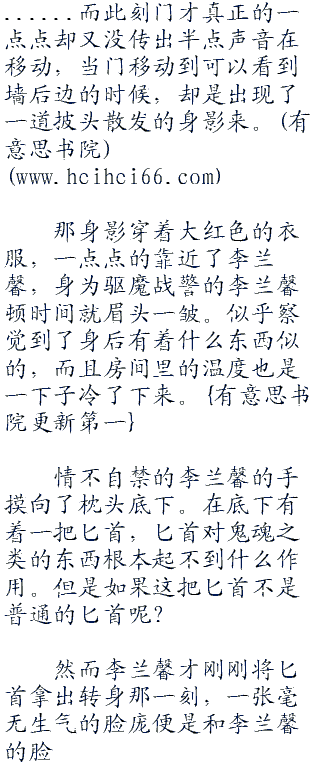 ......而此刻门才真正的一
点点却又没传出半点声音在
移动，当门移动到可以看到
墙后边的时候，却是出现了
一道披头散发的身影来。(有
意思书院)
(www.hcihci66.com)
那身影穿着大红色的衣
服，一点点的靠近了李兰
馨，身为驱魔战警的李兰馨
顿时间就眉头一皱。似乎察
觉到了身后有着什么东西似
的，而且房间里的温度也是
一下子冷了下来。{有意思书
院更新第一}
情不自禁的李兰馨的手
摸向了枕头底下。在底下有
着一把匕首，匕首对鬼魂之
类的东西根本起不到什么作
用。但是如果这把匕首不是
普通的匕首呢？
然而李兰馨才刚刚将匕
首拿出转身那一刻，一张毫
无生气的脸庞便是和李兰馨
的脸